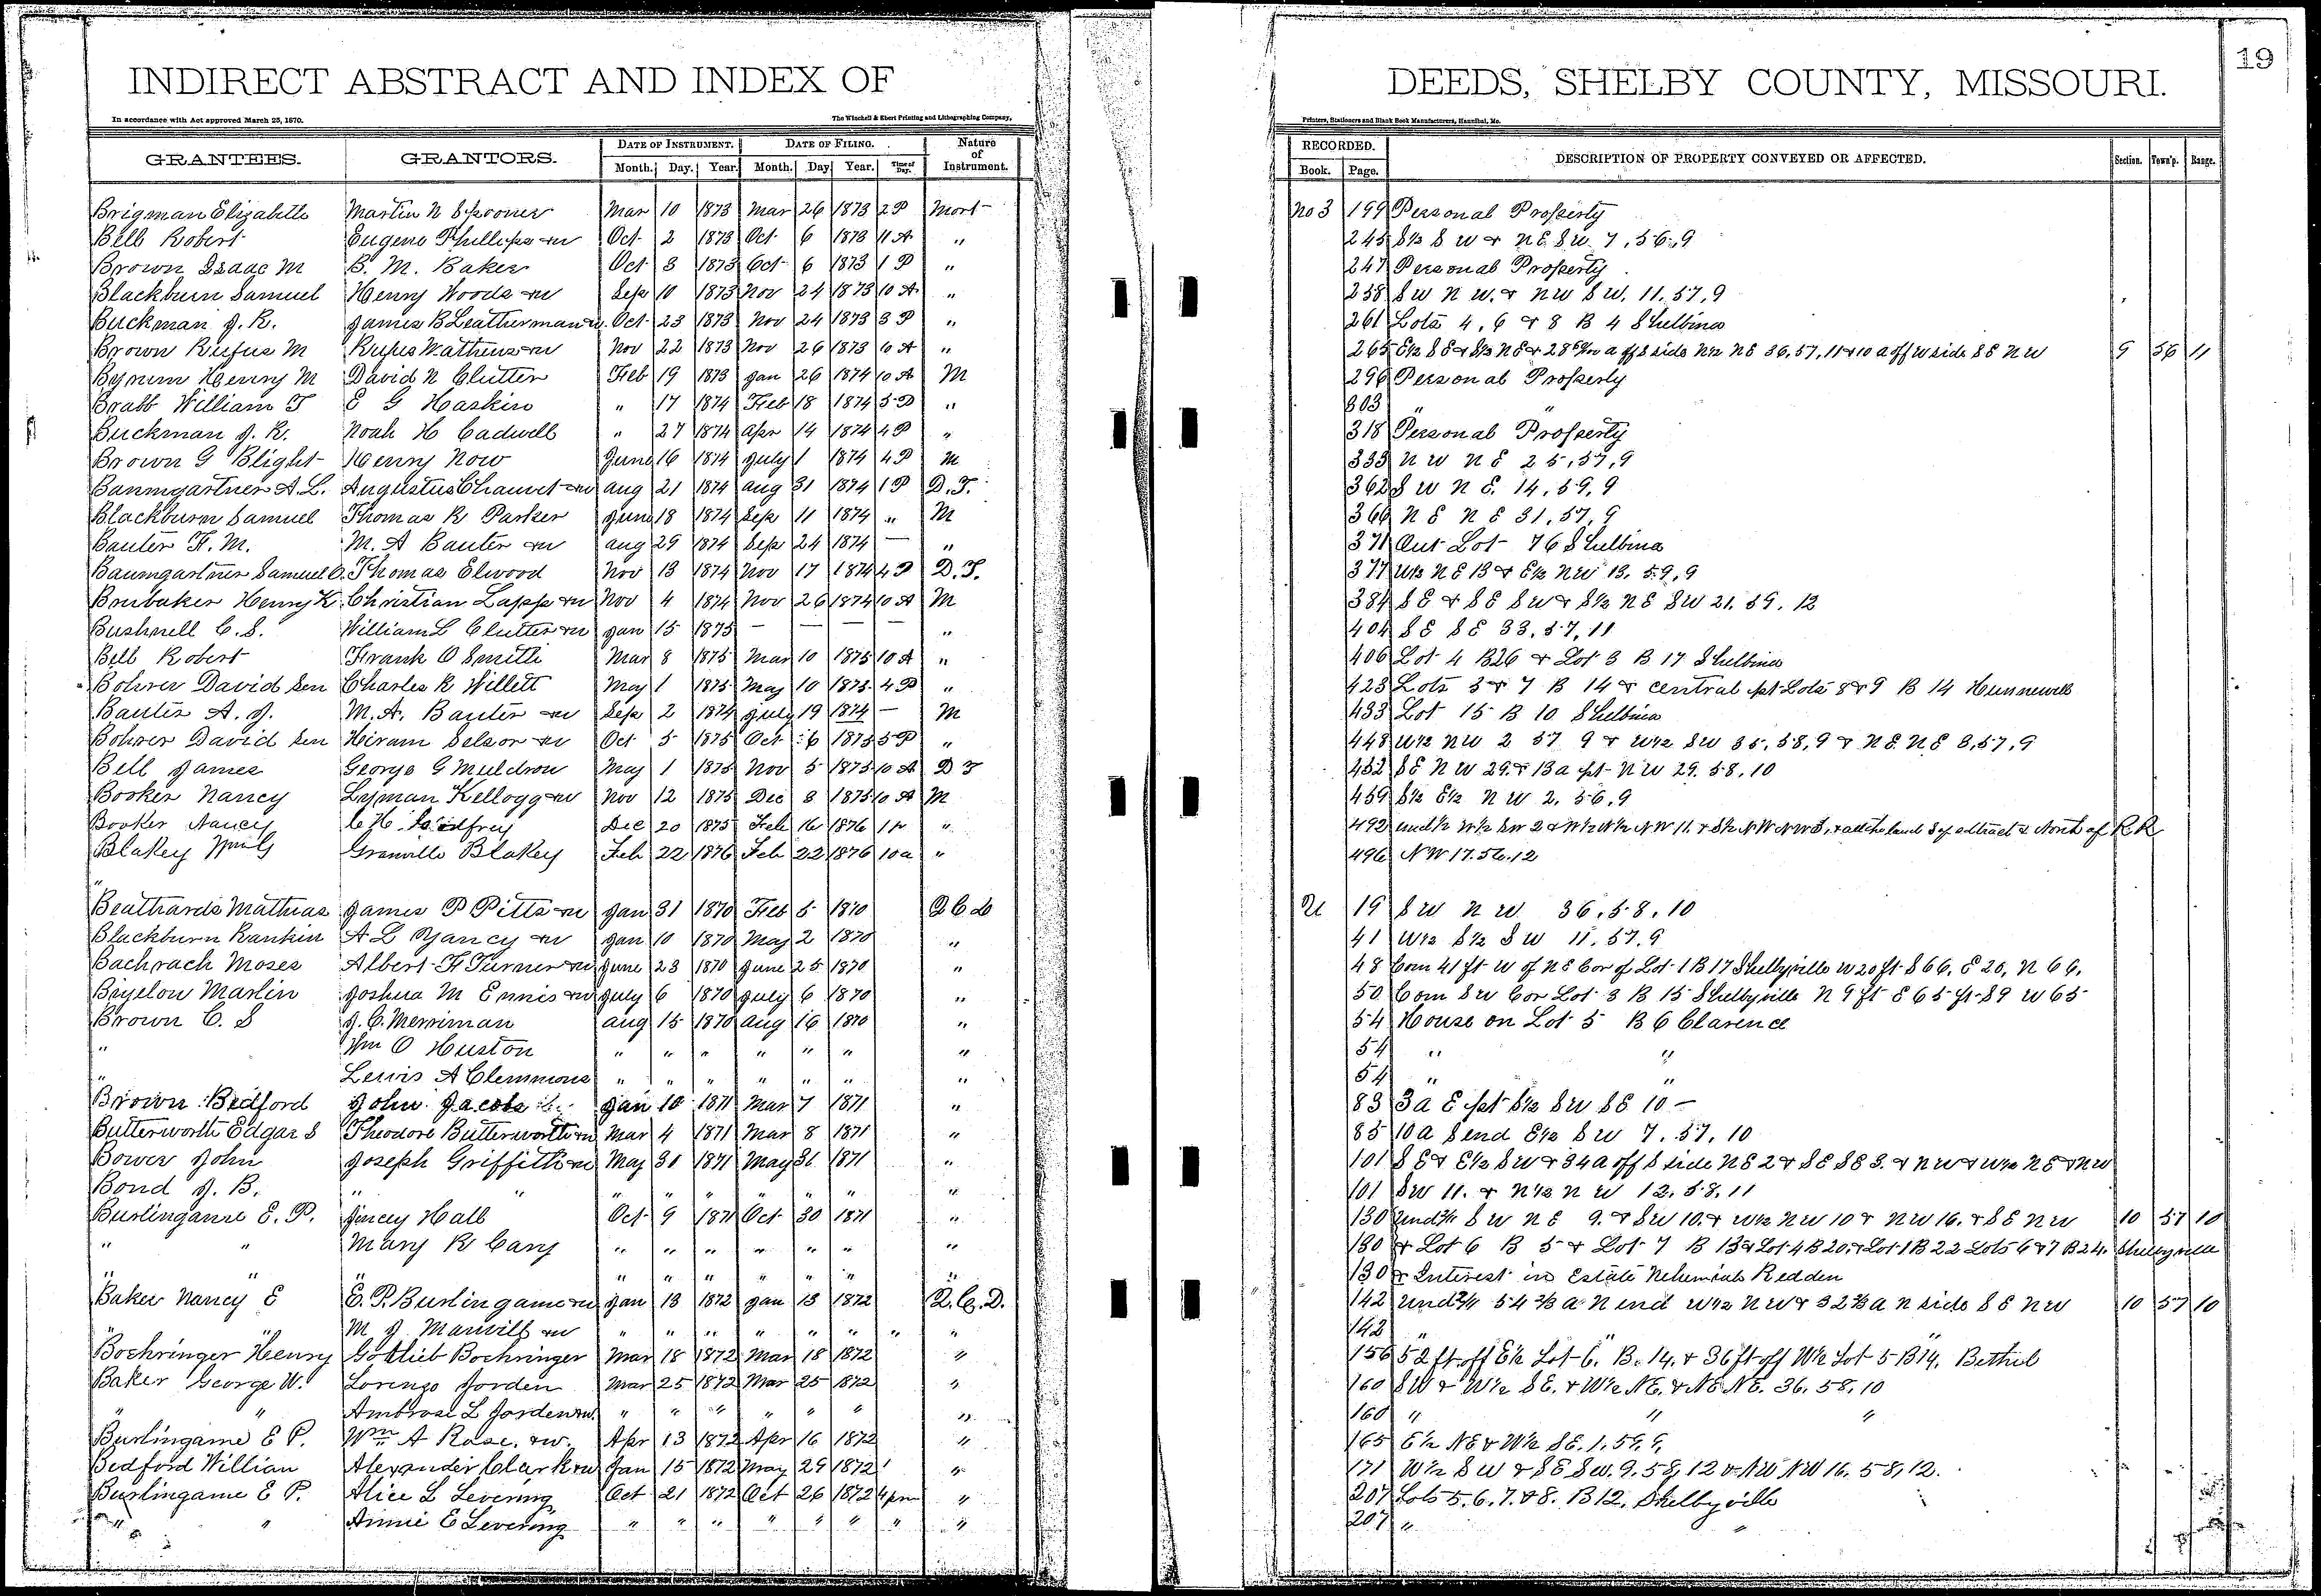 19
INDIRECT ABSTRACT AND INDEX OF DEEDS, SHELBY COUNTY, MISSOURI.
In accordance with Act approved March 25, 1870. The Winchell & Ebert Printing and Lithographing Company, Printers, Stationers and Blank Book Manufacturers, Hannibal, Mo.
GRANTEES. GRANTORS. DATE OF INSTRUMENT. DATE OF FILING. Nature of Instrument. RECORDED. DESCRIPTION OF PROPERTY CONVEYED OR AFFECTED. Section. Town'p. Range.
Month. Day. Year. Month. Day. Year. Time of Day. Book. Page.
Brigman Elizabeth Martin N Spooner Mar 10 1873 Mar 26 1873 2 P Mort No 3 199 Personal Property
Bell Robert Eugene Phillips & w Oct 2 1873 Oct 6 1873 11 A " 245 S½ S W & N E S W 7, 56, 9
Brown Isaac M B. M. Baker Oct 3 1873 Oct 6 1873 1 P " 247 Personal Property
Blackburn Samuel Henry Woods & w Sep 10 1873 Nov 24 1873 10 A " 258 S W N W. & N W S W. 11. 57, 9
Buckman J. R. James B Leatherman & w. Oct 23 1873 Nov 24 1873 3 P " 261 Lots 4, 6 & 8 B 4 Shelbina
Brown Rufus M Rufus Wathen & w Nov 22 1873 Nov 26 1873 10 A " 265 E½ S E & S½ N E & 28 a off S side N½ N E 36, 57, 11 & 10 a off W side S E N W 9 56 11
Bynum Henry M David N Clutter Feb 19 1873 Jan 26 1874 10 A M 296 Personal Property
Brabb William T E G Haskin " 17 1874 Feb 18 1874 5 P " 303 " "
Buckman J. R. Noah H Cadwell " 27 1874 Apr 14 1874 4 P " 318 Personal Property
Brown G Blight Henry Now June 16 1874 July 1 1874 4 P M 333 N W N E 25, 57, 9
Baumgartner A. L. Augustus Chauvet & w Aug 21 1874 Aug 31 1874 1 P D. T. 362 S W N E. 14, 59, 9
Blackburn Samuel Thomas R Parker June 18 1874 Sep 11 1874 " M 366 N E N E 31, 57, 9
Bauter F. M. M. A Bauter & w Aug 29 1874 Sep 24 1874 — " 371 Out Lot 76 Shelbina
Baumgartner Samuel O. Thomas Elwood Nov 13 1874 Nov 17 1874 4 P D. T. 377 W½ N E 13 & E½ N W 13, 59, 9
Brubaker Henry K Christian Lapp & w Nov 4 1874 Nov 26 1874 10 A M 384 S E & S E S W & S½ N E S W 21. 59. 12
Bushnell C. S. William L Clutter & w Jan 15 1875 — — — — " 404 S E S E 33, 57, 11
Bell Robert Frank O Smith Mar 8 1875 Mar 10 1875 10 A " 406 Lot 4 B 26 & Lot 3 B 17 Shelbina
Bohrer David Sen Charles R Willett May 1 1875 May 10 1875 4 P " 423 Lots 3 & 7 B 14 & central pt Lots 8 & 9 B 14 Hunnewell
Bauter A. J. M. A. Bauter & w Sep 2 1874 July 19 1874 — M 433 Lot 15 B 10 Shelbina
Bohrer David Sen Hiram Selsor & w Oct 5 1875 Oct 6 1875 5 P " 448 W½ N W 2 57 9 & W½ S W 35, 58, 9 & N E. N E 3, 57, 9
Bell James George G Muldrow May 1 1875 Nov 5 1875 10 A D T 452 S E N W 29. & 13 a pt N W 29. 58. 10
Booker Nancy Lyman Kellogg & w Nov 12 1875 Dec 8 1875 10 A M 459 S½ E½ N W 2, 56, 9
Booker Nancy C. H. Godfrey Dec 20 1875 Feb 16 1876 1 P " 492 und½ W½ S W 2 & N½ N½ N W 11. & S½ N W N W 3, & all the land S of sd tract & North of R R
Blakey Wm G Granville Blakey Feb 22 1876 Feb 22 1876 10 a " 496 N W 17. 56. 12
Beathards Mathias James P Pitts & w Jan 31 1870 Feb 5 1870 Q C D U 19 S W N W 36, 58, 10
Blackburn Rankin A L Yancy & w Jan 10 1870 May 2 1870 " 41 W½ S½ S W 11, 57, 9
Bachrach Moses Albert F Turner & w June 23 1870 June 25 1870 " 48 Com 41 ft W of N E Cor of Lot 1 B 17 Shelbyville W 20 ft S 66, E 20, N 66.
Bigelow Martin Joshua M Ennis & w July 6 1870 July 6 1870 " 50 Com S W Cor Lot 3 B 15 Shelbyville N 9 ft E 65 ft S 9 W 65
Brown C. S J. C. Merriman Aug 15 1870 Aug 16 1870 " 54 House on Lot 5 B 6 Clarence
" Wm O Huston " " " " " " " 54 " "
" Lewis A Clemmons " " " " " " " 54 " "
Brown Bedford John Jacobs Jan 10 1871 Mar 7 1871 " 83 3 a E pt S½ S W S E 10 —
Butterworth Edgar S Theodore Butterworth & w Mar 4 1871 Mar 8 1871 " 85 10 a S end E½ S W 7. 57, 10
Bower John Joseph Griffith & w May 31 1871 May 31 1871 " 101 S E & E½ S W & 34 a off S side N E 2 & S E S E 3. & N W & W½ N E & N W
Bond J. B. " " " " " " " " " 101 S W 11. & N½ N W 12. 58. 11
Burlingame E. P. Jincey Hall Oct 9 1871 Oct 30 1871 " 130 S W N E 9. & S W 10. & W½ N W 10 & N W 16. & S E N W 10 57 10
" " Mary K Cary " " " " " " " 130 & Lot 6 B 5 & Lot 7 B 13 & Lot 4 B 20. & Lot 1 B 22 Lots 6 & 7 B 24. Shelbyville
" " " " " " " " " " 130 & Interest in Estate Nehemiah Redden
Baker Nancy E E. P. Burlingame & w Jan 13 1872 Jan 13 1872 Q. C. D. 142 54 ⅔ a N end W½ N W & 32 ⅔ a N side S E N W 10 57 10
" " M J Manvill & w " " " " " " " " 142 " " "
Boehringer Henry Gottlieb Boehringer Mar 18 1872 Mar 18 1872 " 156 52 ft off E½ Lot 6. B. 14. & 36 ft off W½ Lot 5 B 14. Bethel
Baker George W. Lorenzo Jorden Mar 25 1872 Mar 25 1872 " 160 S W & W½ S E. & W½ N E. & N E N E. 36. 58. 10
" " Ambrose L Jorden & w. " " " " " " " 160 " " "
Burlingame E P. Wm A Rase. & w. Apr 13 1872 Apr 16 1872 " 165 E½ N E & W½ S E. 1. 59. 9.
Bedford Willian Alexander Clark & w Jan 15 1872 May 29 1872 " 171 W½ S W & S E S W. 9. 58, 12 & N W N W 16. 58, 12.
Burlingame E P. Alice L Levering Oct 21 1872 Oct 26 1872 4 pm " 207 Lots 5. 6. 7. & 8. B 12. Shelbyville
" " Annie E Levering " " " " " " " " 207 " "